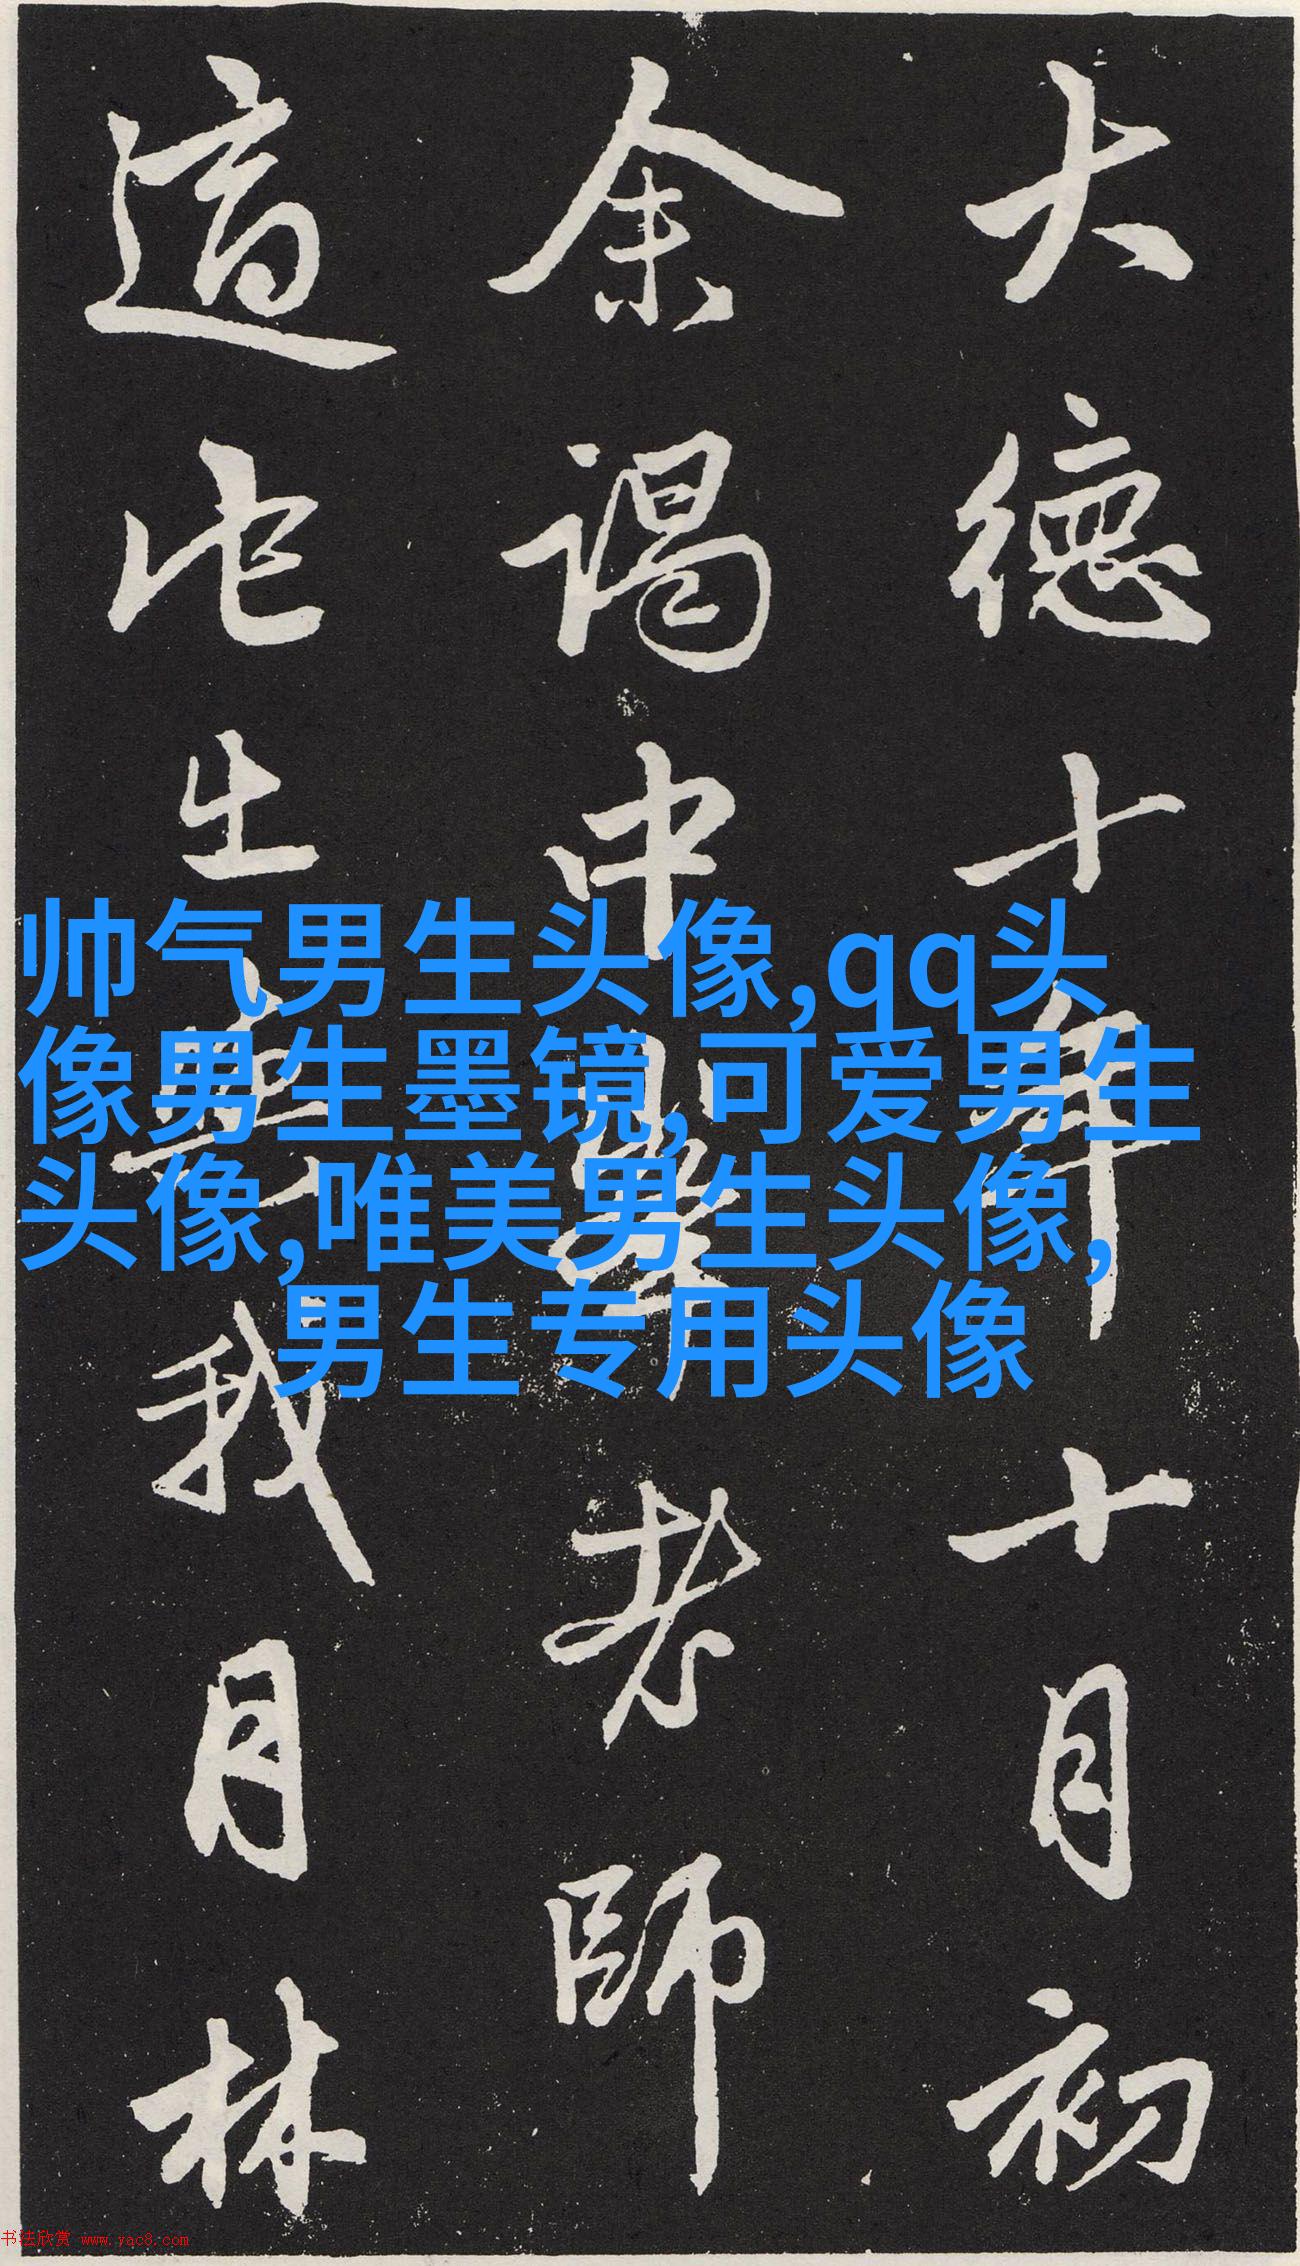 大德十年十月初
余謁中峯老師
適此 我月林
帅气男生头像,qq头
像男生墨镜,可爱男生
头像,唯美男生头像,
男生专用头像
书法欣赏 www.yac8.com